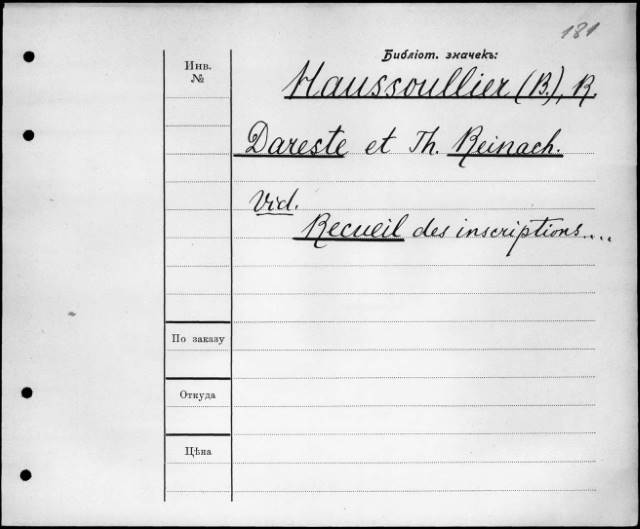 181
Библіот. значекъ:
Инв.
№
Haussoullier (B.), R.
Dareste et Th. Reinach.
Vid.
Recueil des inscriptions....
По заказу
Откуда
Цѣна